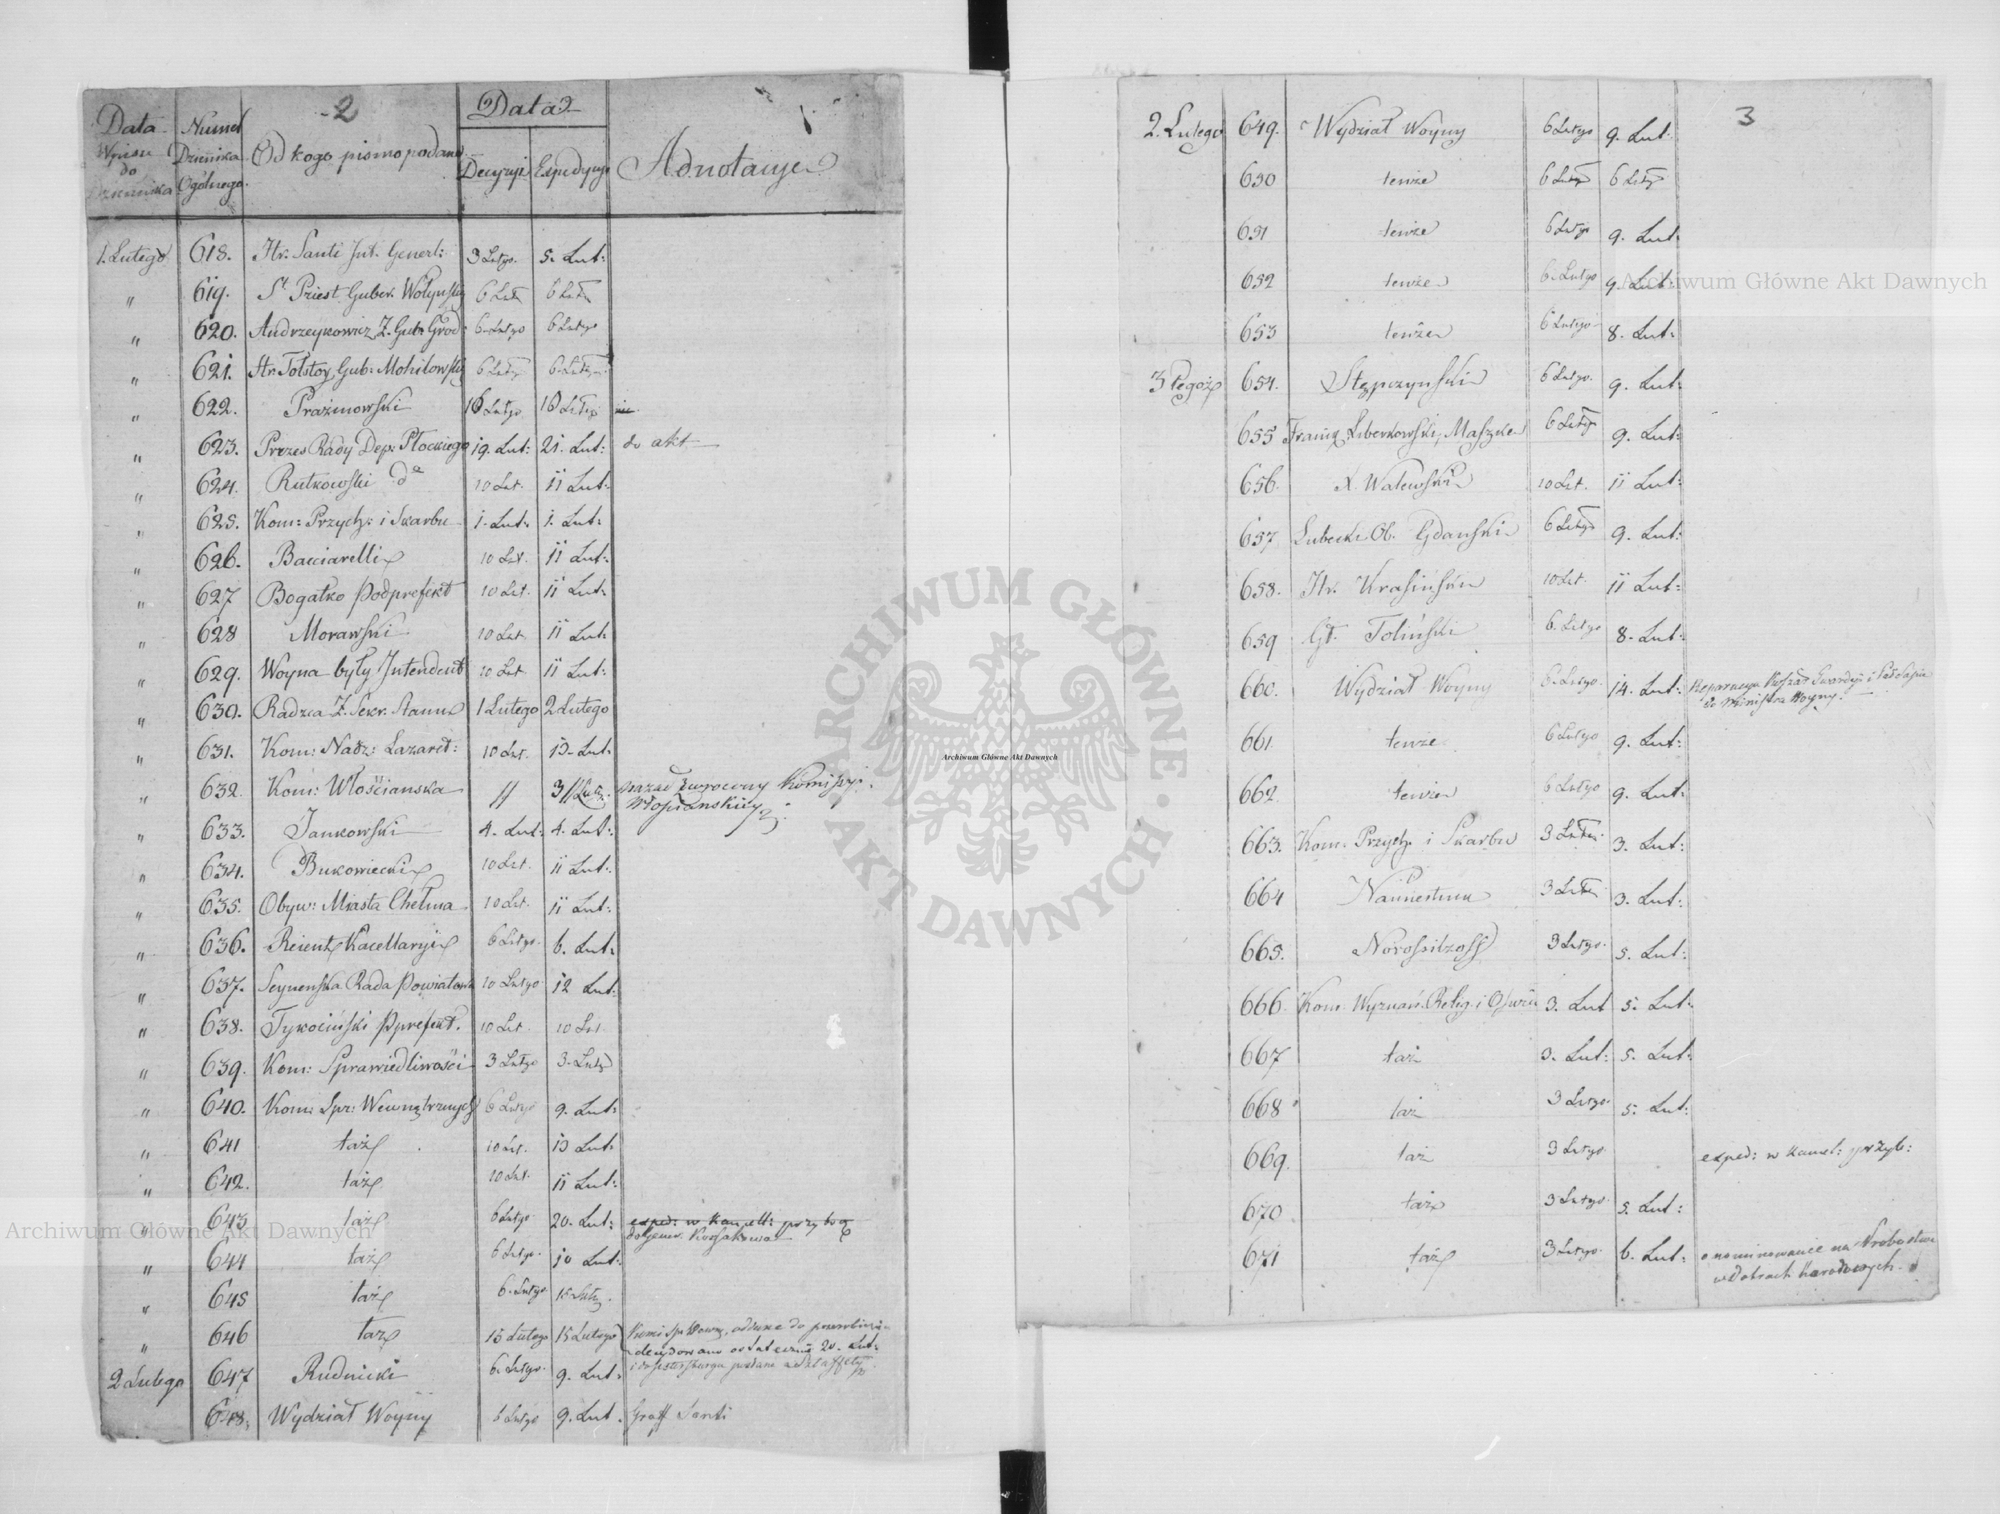 2
Data Wpisu do Dziennika | Numer Dziennika Ogólnego | Od kogo pismo podane | Data Decyzyi | Expedycyi | Adnotacye
1. Lutego | 618. | Hr. Santi Jnt. Generl: | 3 Lutgo. | 5. Lut:
" | 619. | Guber. Wołyński | 6 Lut | 6 Lut
" | 620. | Andrzeykowicz Z. Gub. Grod: | 6. Lutgo | 6 Lutgo
" | 621. | Hr. Tołstoy, Gub. Mohilowski | 6 Lutg | 6. Lutg
" | 622. | Prażmowski | 16 Lutgo | 16 Lutg
" | 623. | Prezes Rady Dep. Płockiego | 19. Lut: | 21. Lut: | do akt
" | 624. | Rutkowski do | 10 Lut. | 11 Lut:
" | 625. | Kom: Przych: i Skarbu | 1. Lut: | 1. Lut:
" | 626. | Bacciarelli | 10 Lut. | 11 Lut:
" | 627 | Bogatko Podprefekt | 10 Lut. | 11 Lut:
" | 628 | Morawski | 10 Lut. | 11 Lut:
" | 629. | Woyna były Jntendent | 10 Lut | 11 Lut:
" | 630. | Radzca Z. Sekr. Stanu | 1 Lutego | 2 Lutego
" | 631. | Kom: Nadz: Lazaret: | 10 Lut. | 13. Lut:
" | 632. | Kom: Włościanska | // | 3 // Lutg. | nazad zwrocony Komisyi
Włosciańskiey
" | 633. | Jankowski | 4. Lut: | 4. Lut:
" | 634. | Bukowiecki | 10 Lut. | 11 Lut:
" | 635. | Obyw: Miasta Chełma | 10 Lut. | 11 Lut:
" | 636. | Reient Kacellaryi | 6 Lutgo. | 6. Lut:
" | 637. | Seynenska Rada Powiatowa | 10 Lutgo | 12 Lut:
" | 638. | Tykociński Pprefekt. | 10 Lut. | 10 Lut.
" | 639. | Kom: Sprawiedliwości | 3 Lutgo | 3. Lutg
" | 640. | Kom: Spr: Wewnętrznych | 6 Lutgo | 9. Lut:
" | 641 | taż | 10 Lut. | 13 Lut:
" | 642. | taż | 10 Lut. | 11 Lut:
" | 643 | taż | 6 Lutgo | 20. Lut: | exped: w Kancell: przyboc
Kossakowa
" | 644 | taż | 6 Lutgo. | 10 Lut:
" | 645 | taż | 6. Lutgo | 15 Lutg.
" | 646 | taż | 15 Lutego | 15 Lutego | Komi Spr Wewn.
decydowano ostatecznie 20. Lut:
2 Lutego | 647 | Rudnicki | 6. Lutgo. | 9. Lut:
648. | Wydział Woyny | 6 Lutgo | 9. Lut. | Graff Santi
3
2. Lutego | 649. | Wydział Woyny | 6 Lutgo | 9. Lut:
650 | tenże | 6 Lutg | 6 Lutg
651 | tenże | 6 Lutgo | 9. Lut:
652 | tenże | 6. Lutgo | 9. Lut:
653 | tenże | 6 Lutgo | 8. Lut:
3 tegoż | 654. | Stępczyński | 6 Lutgo. | 9. Lut:
655 | Maszke | 6 Lutg | 9. Lut:
656. | X. Walewski | 10 Lut. | 11 Lut:
657 | Lubecki Ob. Gdanski | 6 Lutg | 9. Lut:
658. | Hr. Krasiński | 10 Lut. | 11 Lut:
659 | Gł. Toliński | 6. Lutgo | 8. Lut:
660. | Wydział Woyny | 6. Lutgo. | 14. Lut: | Reparacya Koszar Gwardyi
do Ministra Woyny.
661. | tenże | 6 Lutgo | 9. Lut:
662. | tenże | 6 Lutgo | 9. Lut:
663. | Kom. Przych. i Skarbu | 3 Lutg. | 3. Lut:
664 | Namiestnik | 3 Lutg. | 3. Lut:
665. | Nowossilzoff | 3 Lutgo. | 5. Lut:
666. | Kom. Wyznań. Relig. i Oświe | 3. Lut | 5. Lut:
667 | taż | 3. Lut: | 5. Lut:
668 | taż | 3 Lutgo. | 5. Lut:
669. | taż | 3 Lutgo | exped: w kancel: przyb:
670 | taż | 3 Lutgo. | 5. Lut:
671 | taż | 3 Lutgo. | 6. Lut: | o nominowanie na Probostwa
w dobrach Narodowych.
ARCHIWUM GŁÓWNE AKT DAWNYCH
Archiwum Główne Akt Dawnych
Archiwum Główne Akt Dawnych
Archiwum Główne Akt Dawnych